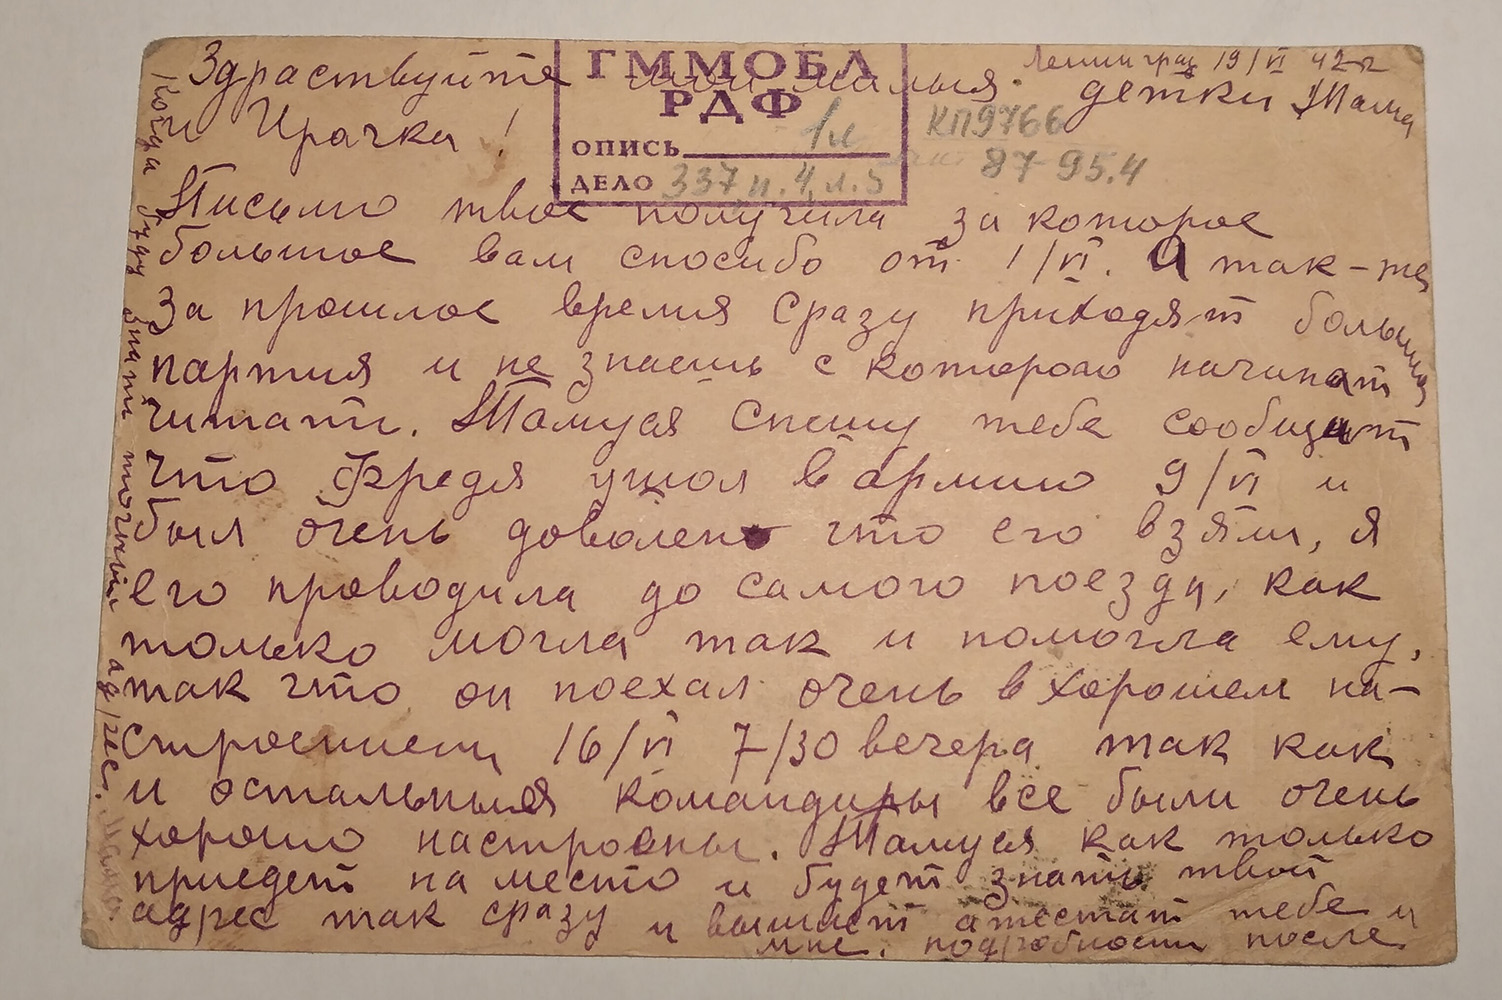 Ленинград 19/VI 42 г
Здраствуйте мои милыя детки Тама
и Ирочка!
ГММОБЛ
РДФ
ОПИСЬ 1л
ДЕЛО 337 и.4, л.5
КП9766
87-95.4
Письмо твое получила за которое
большое вам спосибо от 1/VI. А так-же
За прошлое время сразу приходят большия
партия и не знаешь с которого начинат
читать. Тамуся Спешу тебе сообщит
что Фредя ушол в армию 9/VI и
был очень доволен что его взяли, я
его проводила до самого поезда, как
только могла так и помогла ему,
так что он поехал очень в хорошем на-
строении 16/VI 7/30 вечера так как
и остальныя командиры все были очень
хорошо настроены. Тамуся как только
приедет на место и будет знать твой
адрес так сразу и вышлет атестат тебе и
мне. подробности после
Когда буду знать точный адрес. Мама.